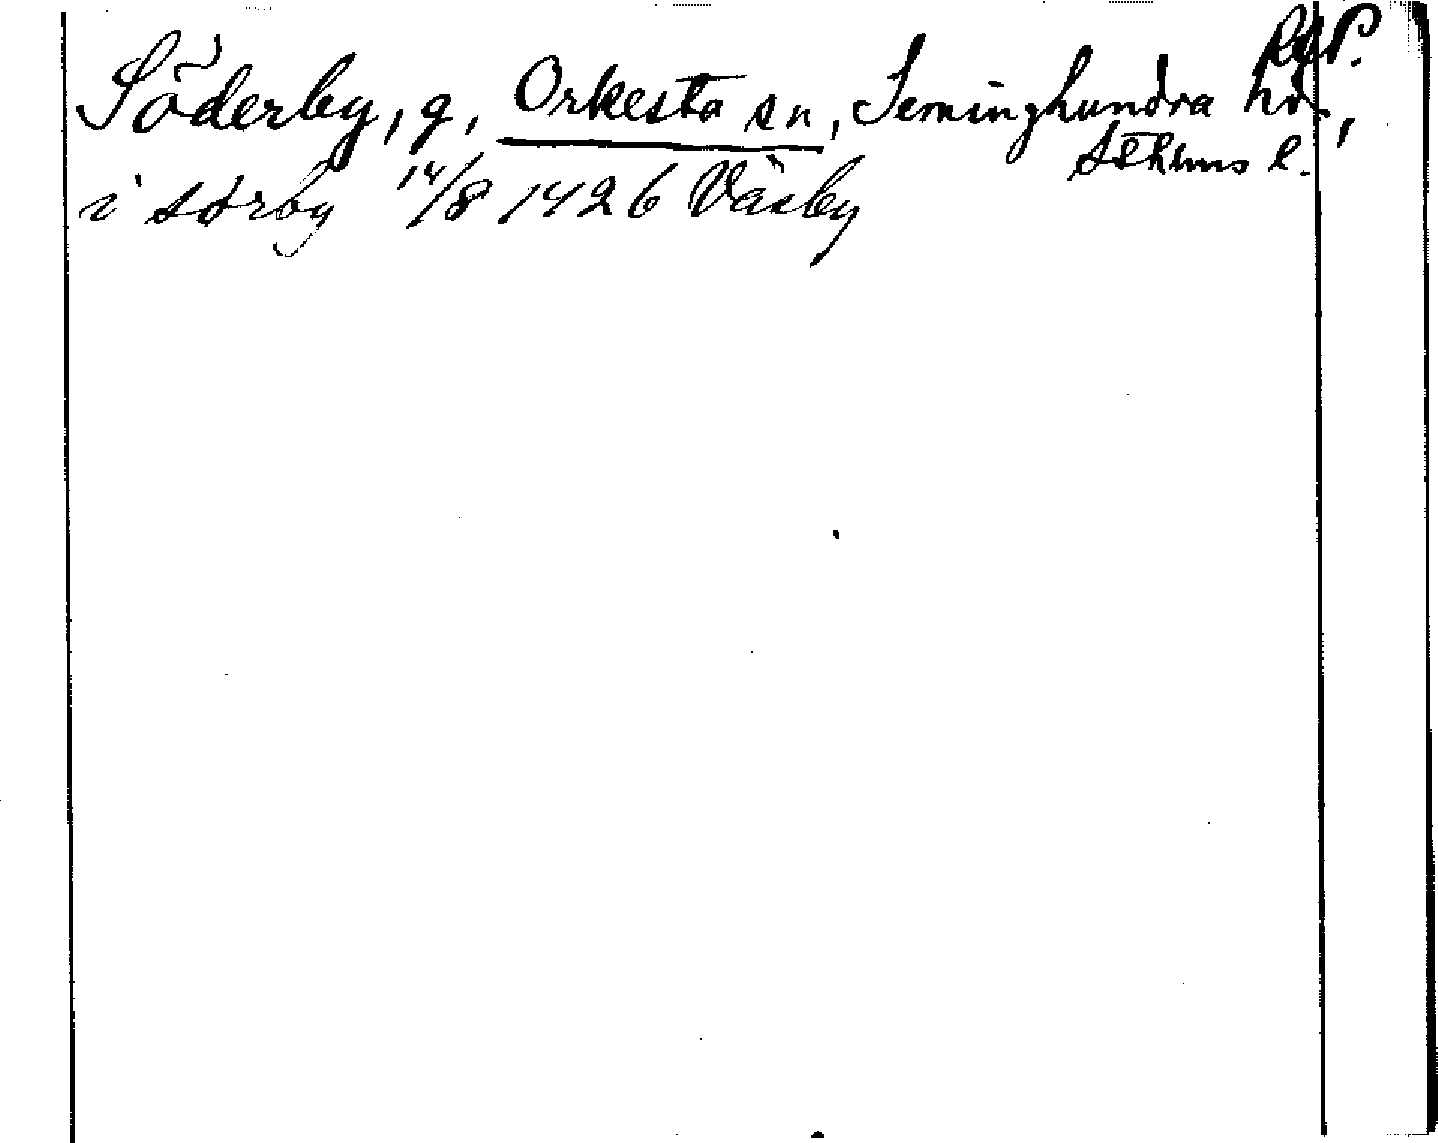 RAP.
Söderby, g, Orkesta sn, Seminghundra hd,
Sthlms l.
i sørby 14/8 1426 Väsby